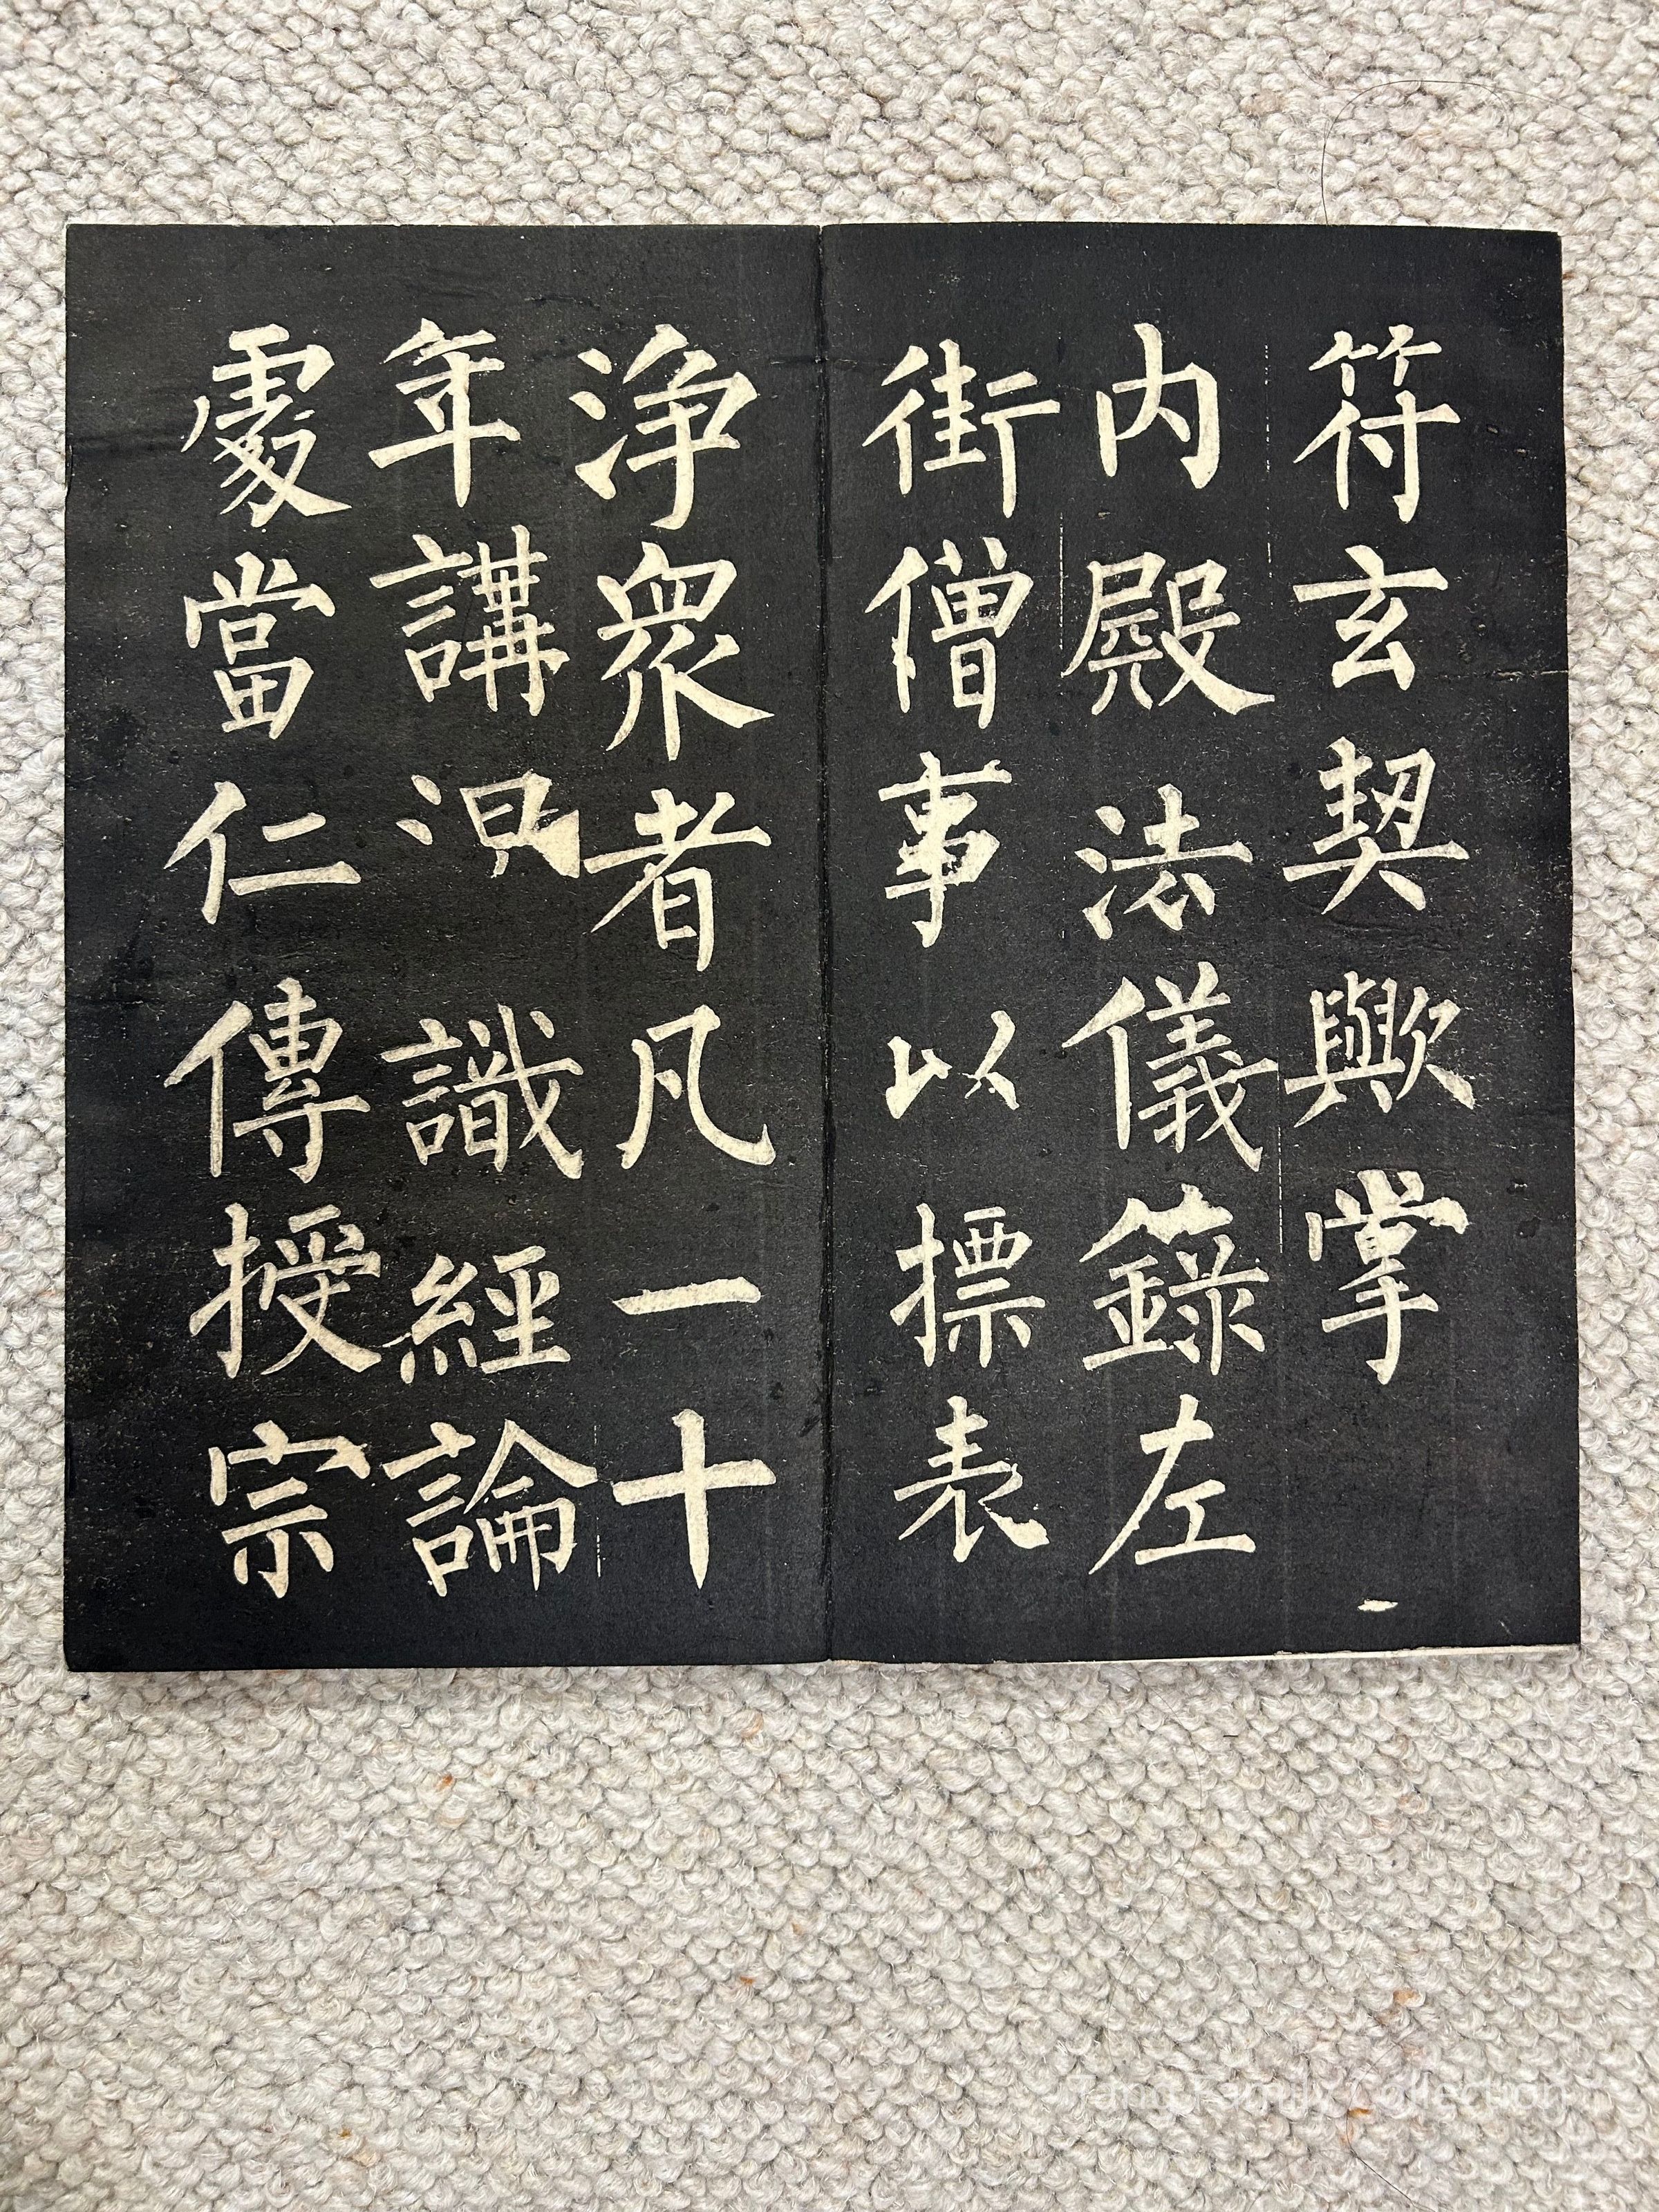 符玄契歟掌
内殿法儀錄左
街僧事以摽表
浄衆者凡一十
年講識經論
處當仁傳授宗
Family Collection